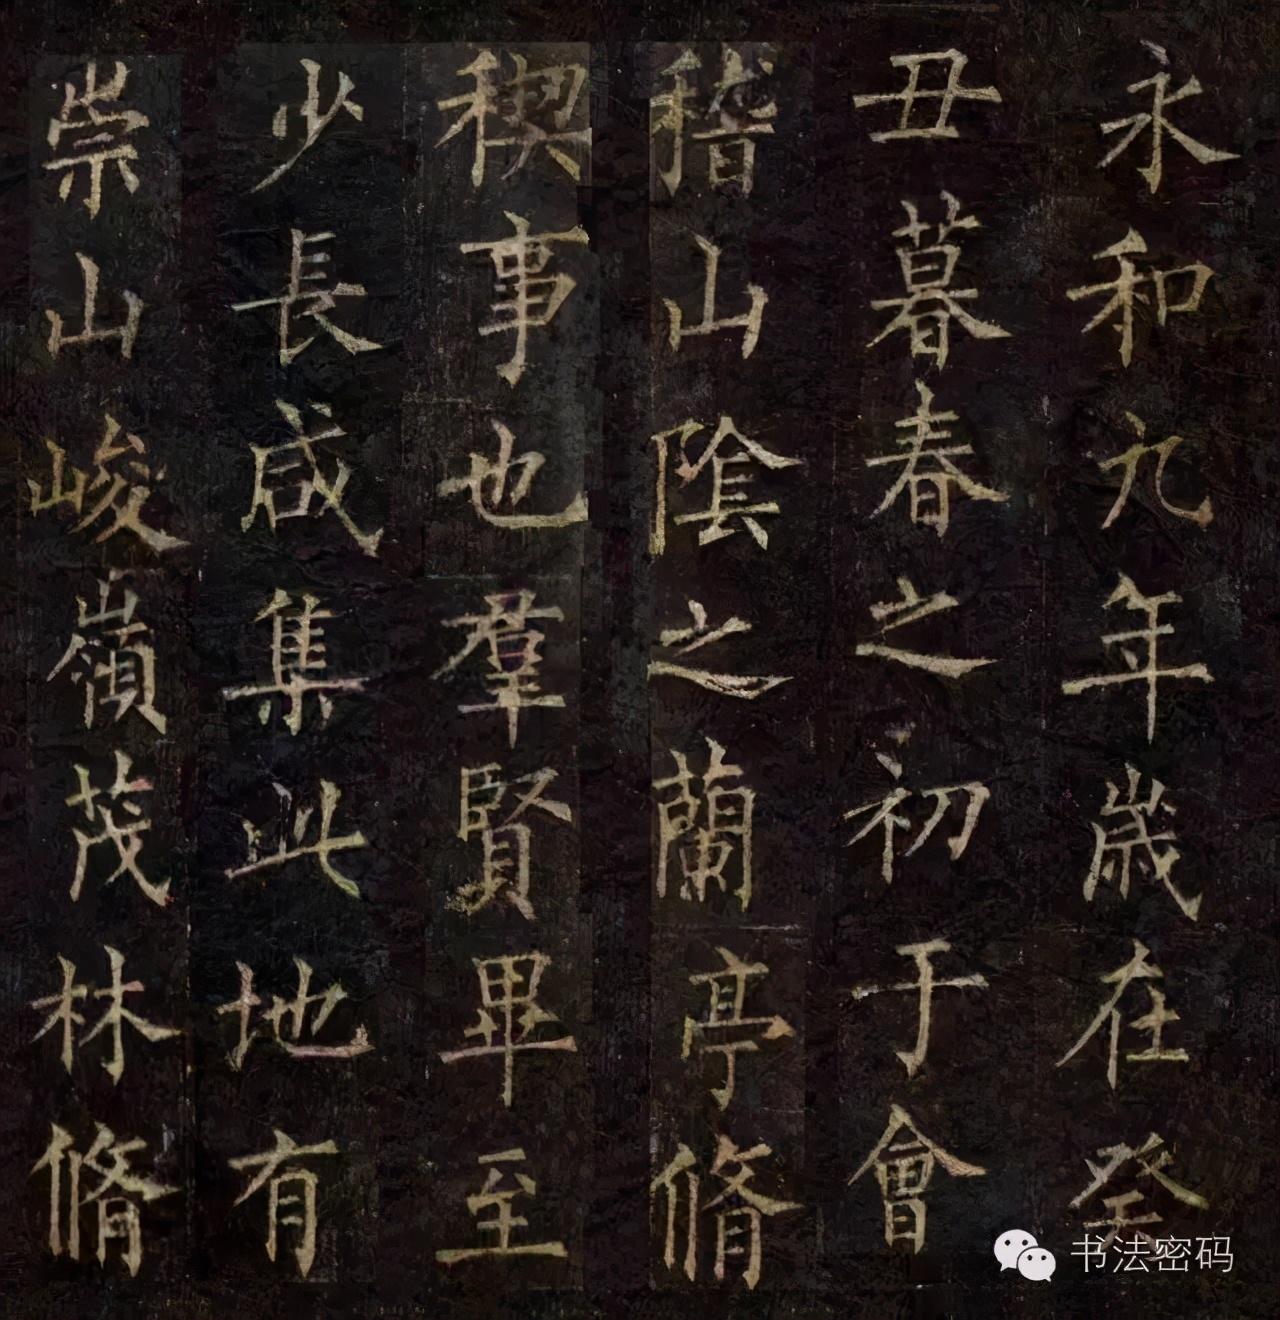 永和九年歲在癸
丑暮春之初于會
稽山陰之蘭亭脩
稧事也羣賢畢至
少長咸集此地有
崇山峻嶺茂林脩
书法密码